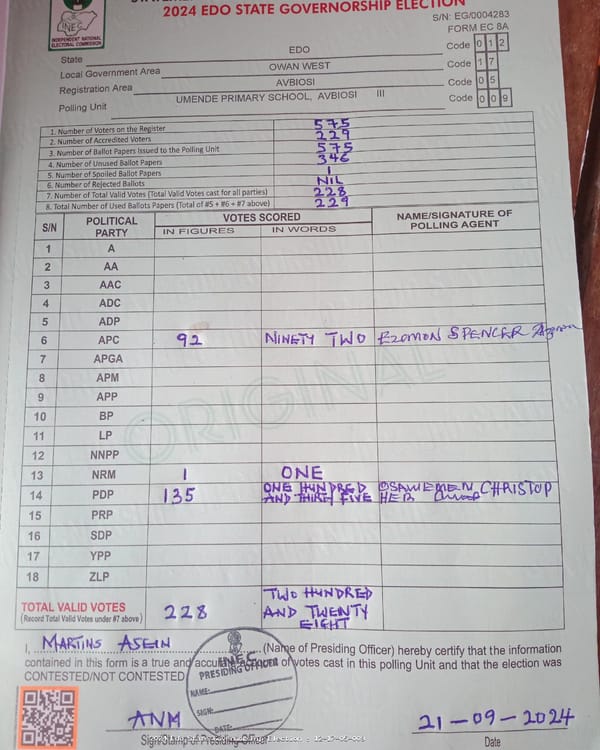 2024 EDO STATE GOVERNORSHIP ELECTION
S/N: EG/0004283
FORM EC 8A
INEC
INDEPENDENT NATIONAL
ELECTORAL COMMISSION
State EDO Code 0 1 2
Local Government Area OWAN WEST Code 1 7
Registration Area AVBIOSI Code 0 5
Polling Unit UMENDE PRIMARY SCHOOL, AVBIOSI III Code 0 0 9
1. Number of Voters on the Register 575
2. Number of Accredited Voters 229
3. Number of Ballot Papers Issued to the Polling Unit 575
4. Number of Unused Ballot Papers 346
5. Number of Spoiled Ballot Papers 1
6. Number of Rejected Ballots NIL
7. Number of Total Valid Votes (Total Valid Votes cast for all parties) 228
8. Total Number of Used Ballots Papers (Total of #5 + #6 + #7 above) 229
S/N POLITICAL PARTY VOTES SCORED NAME/SIGNATURE OF POLLING AGENT
IN FIGURES IN WORDS
1 A
2 AA
3 AAC
4 ADC
5 ADP
6 APC 92 NINETY TWO EZOMON SPENCER
7 APGA
8 APM
9 APP
10 BP
11 LP
12 NNPP
13 NRM 1 ONE
14 PDP 135 ONE HUNDRED AND THIRTY FIVE OSAWEMEN CHRISTOP HER
15 PRP
16 SDP
17 YPP
18 ZLP
ORIGINAL
TOTAL VALID VOTES 228 TWO HUNDRED AND TWENTY EIGHT
(Record Total Valid Votes under #7 above)
I, MARTINS ASEIN (Name of Presiding Officer) hereby certify that the information
contained in this form is a true and accurate account of votes cast in this polling Unit and that the election was
CONTESTED/NOT CONTESTED
INEC
PRESIDING OFFICER
NAME:
SIGN:
DATE:
ANM 21-09-2024
Sign/Stamp of Presiding Officer Date